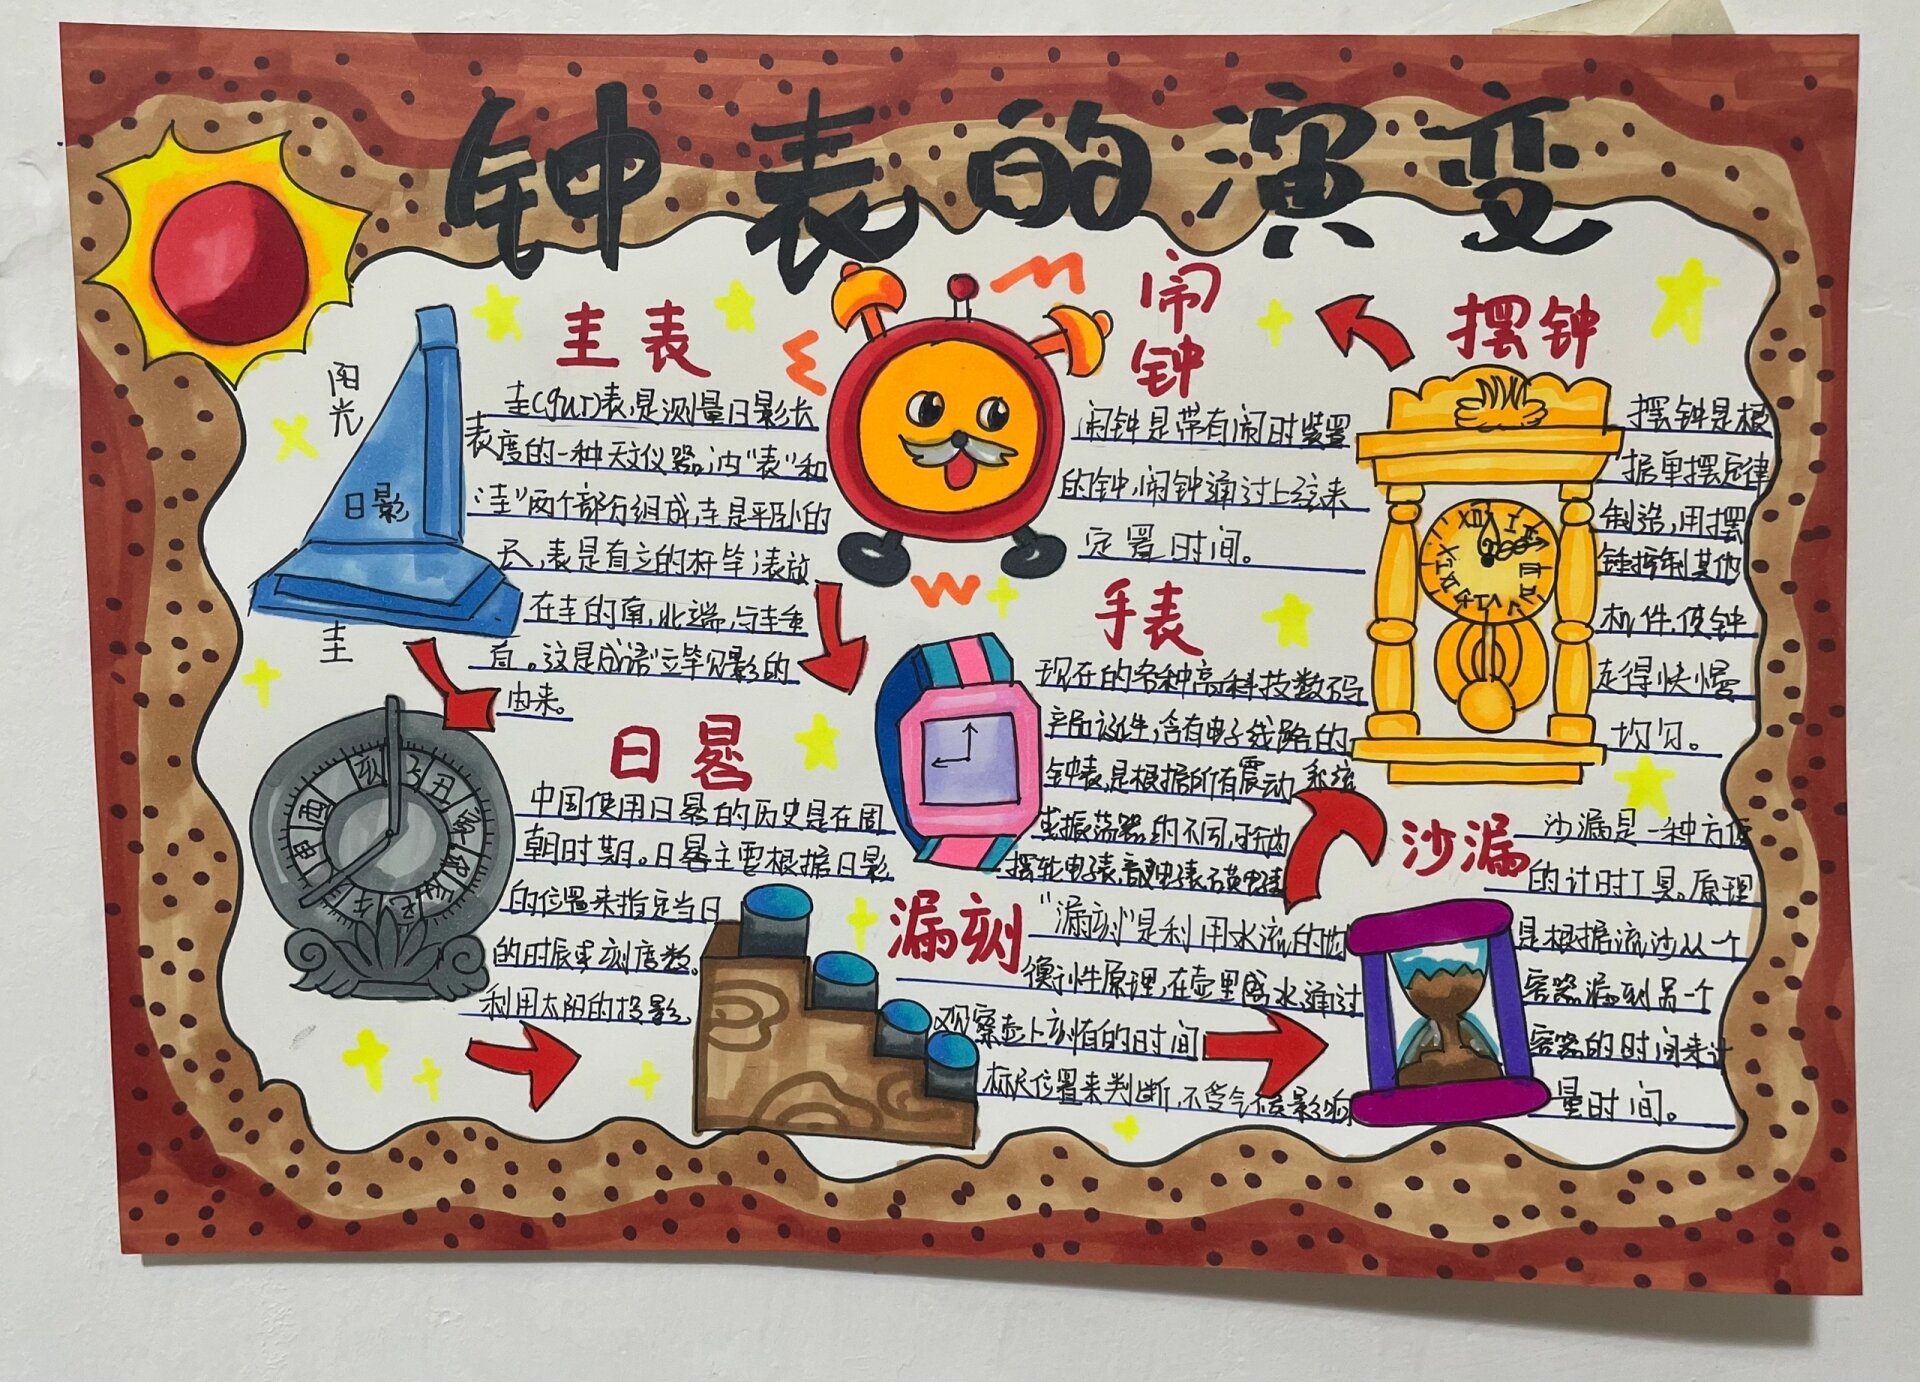 钟表的演变
阳光
日影
圭
圭表
圭(guī)表,是测量日影长
表度的一种天文仪器,由"表"和
"圭"两个部分组成,圭是平卧的
尺,表是直立的标竿,表放
在圭的南,北端,与圭垂
直。这是成语"立竿见影的
由来。
日晷
中国使用日晷的历史是在周
朝时期。日晷主要根据日影
的位置来指定当日
的时辰或刻度数。
利用太阳的投影
漏刻
"漏刻"是利用水流的均
衡性原理,在壶里盛水通过
观察壶上刻有的时间
标尺位置来判断,不受气候影响
沙漏
沙漏是一种方便
的计时工具。原理
是根据流沙从一个
容器漏到另一个
容器的时间来计
量时间。
摆钟
摆钟是根
据单摆定律
制造,用摆
锤控制其他
机件,使钟
走得快慢
均匀。
闹钟
闹钟是带有闹时装置
的钟,闹钟通过上弦来
定置时间。
手表
现在的各种高科技数码
产品诞生,含有电子线路的
钟表,是根据所有震动系统
或振荡器的不同,可称为
摆轮电子表,音叉电子表,石英电子表